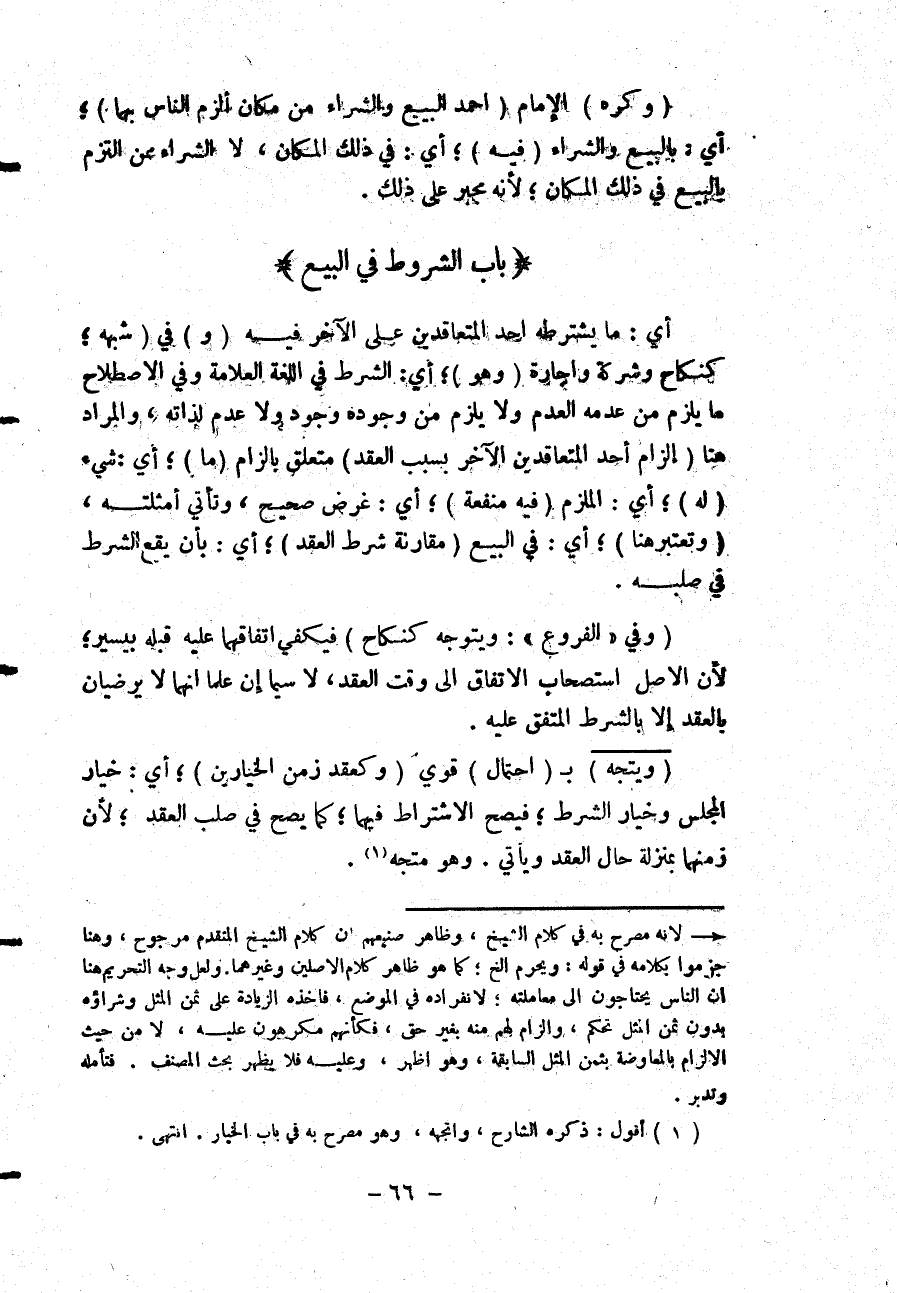 ( وكره ) الإمام ( احمد البيع والشراء من مكان ألزم الناس بهما ) ؛
أي : بالبيع والشراء ( فيه ) ؛ أي : في ذلك المكان ، لا الشراء ممن التزم
بالبيع في ذلك المكان ؛ لأنه مجبر على ذلك .
﴿ باب الشروط في البيع ﴾
أي : ما يشترطه احد المتعاقدين على الآخر فيـــه ( و ) في ( شبهه ؛
كنكاح وشركة واجارة ( وهو ) ؛ أي : الشرط في اللغة العلامة وفي الاصطلاح
ما يلزم من عدمه العدم ولا يلزم من وجوده وجود ولا عدم لذاته ، والمراد
هنا ( الزام أحد المتعاقدين الآخر بسبب العقد ) متعلق بالزام (ما) ؛ أي : شيء
( له ) ؛ أي : الملزم ( فيه منفعة ) ؛ أي : غرض صحيح ، وتأتي أمثلتـــه ،
( وتعتبر هنا ) ؛ أي : في البيع ( مقارنة شرط العقد ) ؛ أي : بأن يقع الشرط
في صلبـــه .
( وفي « الفروع » : ويتوجه كنكاح ) فيكفي اتفاقهما عليه قبله بيسير؛
لأن الاصل استصحاب الاتفاق الى وقت العقد، لا سيما إن علما انهما لا يرضيان
بالعقد إلا بالشرط المتفق عليه .
( ويتجه ) بـ ( احتمال ) قوي ( وكعقد زمن الخيارين ) ؛ أي : خيار
المجلس وخيار الشرط ؛ فيصح الاشتراط فيهما ؛ كما يصح في صلب العقد ؛ لأن
زمنهما بمنزلة حال العقد ويأتي . وهو متجه (١) .
جـ— لانه مصرح به في كلام الشيخ ، وظاهر صنيعهم ان كلام الشيخ المتقدم مرجوح ، وهنا
جزموا بكلامه في قوله : ويحرم الخ ؛ كما هو ظاهر كلام الاصلين وغيرهما.ولعل وجه التحريم هنا
ان الناس يحتاجون الى معاملته ؛ لانفراده في الموضع ، فاخذه الزيادة على ثمن المثل وشراؤه
بدون ثمن المثل تحكم ، والزام لهم منه بغير حق ، فكأنهم مكرهون عليـــه ، لا من حيث
الالزام بالمعاوضة بثمن المثل السابقة ، وهو اظهر ، وعليـــه فلا يظهر بحث المصنف . فتأمله
وتدبر .
( ١ ) أقول : ذكره الشارح ، واتجهه ، وهو مصرح به في باب الخيار . انتهى .
- ٦٦ -